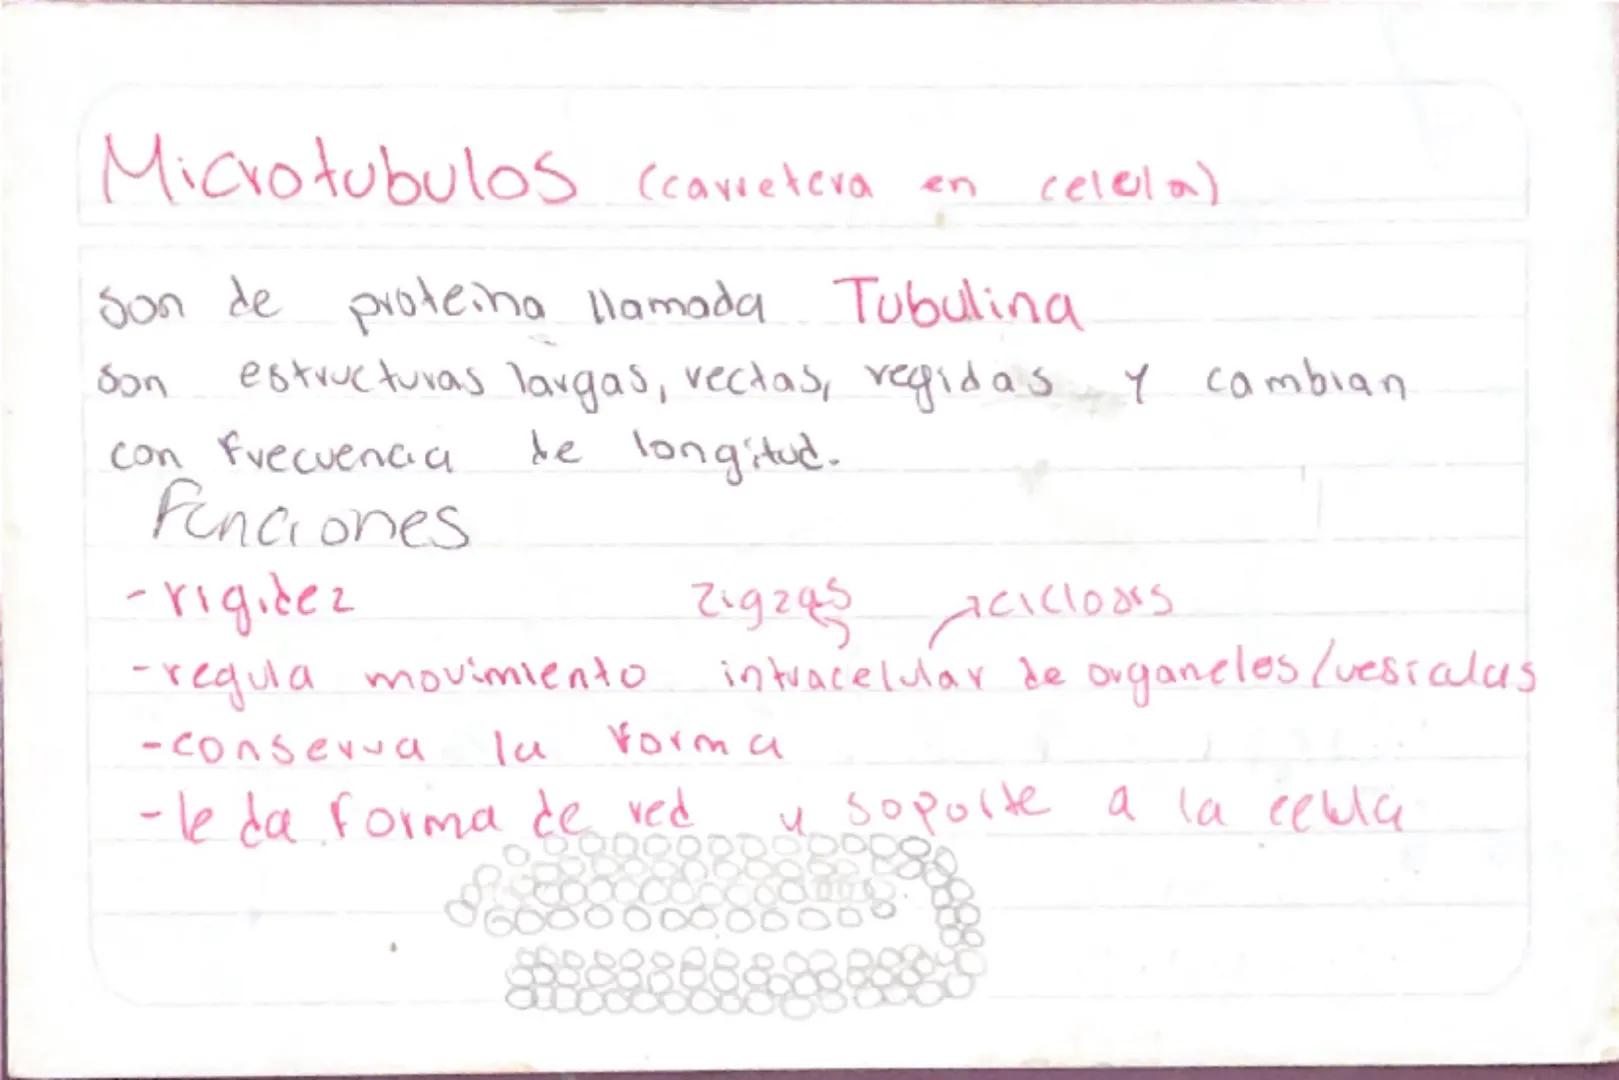 Microtubulos (carretera en celula)
son de proteina llamada Tubulina
son estructuras largas, rectas, regidas y cambian
con frecuencia de longitud.
Funciones
- rigidez
zigzas
- regula movimiento intracelular de organelos/vesiculas
- conserva la forma
- le da forma de red y soporte a la celula